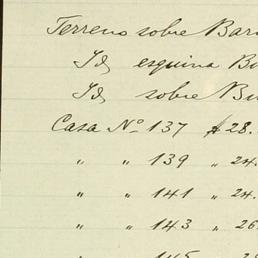 Terreno sobre Bar
Id, esquina Bu
Id, sobre Bu
Casa Nº 137 $ 28.
" " 139 " 24.
" " 141 " 24.
" " 143 " 26
" " 145